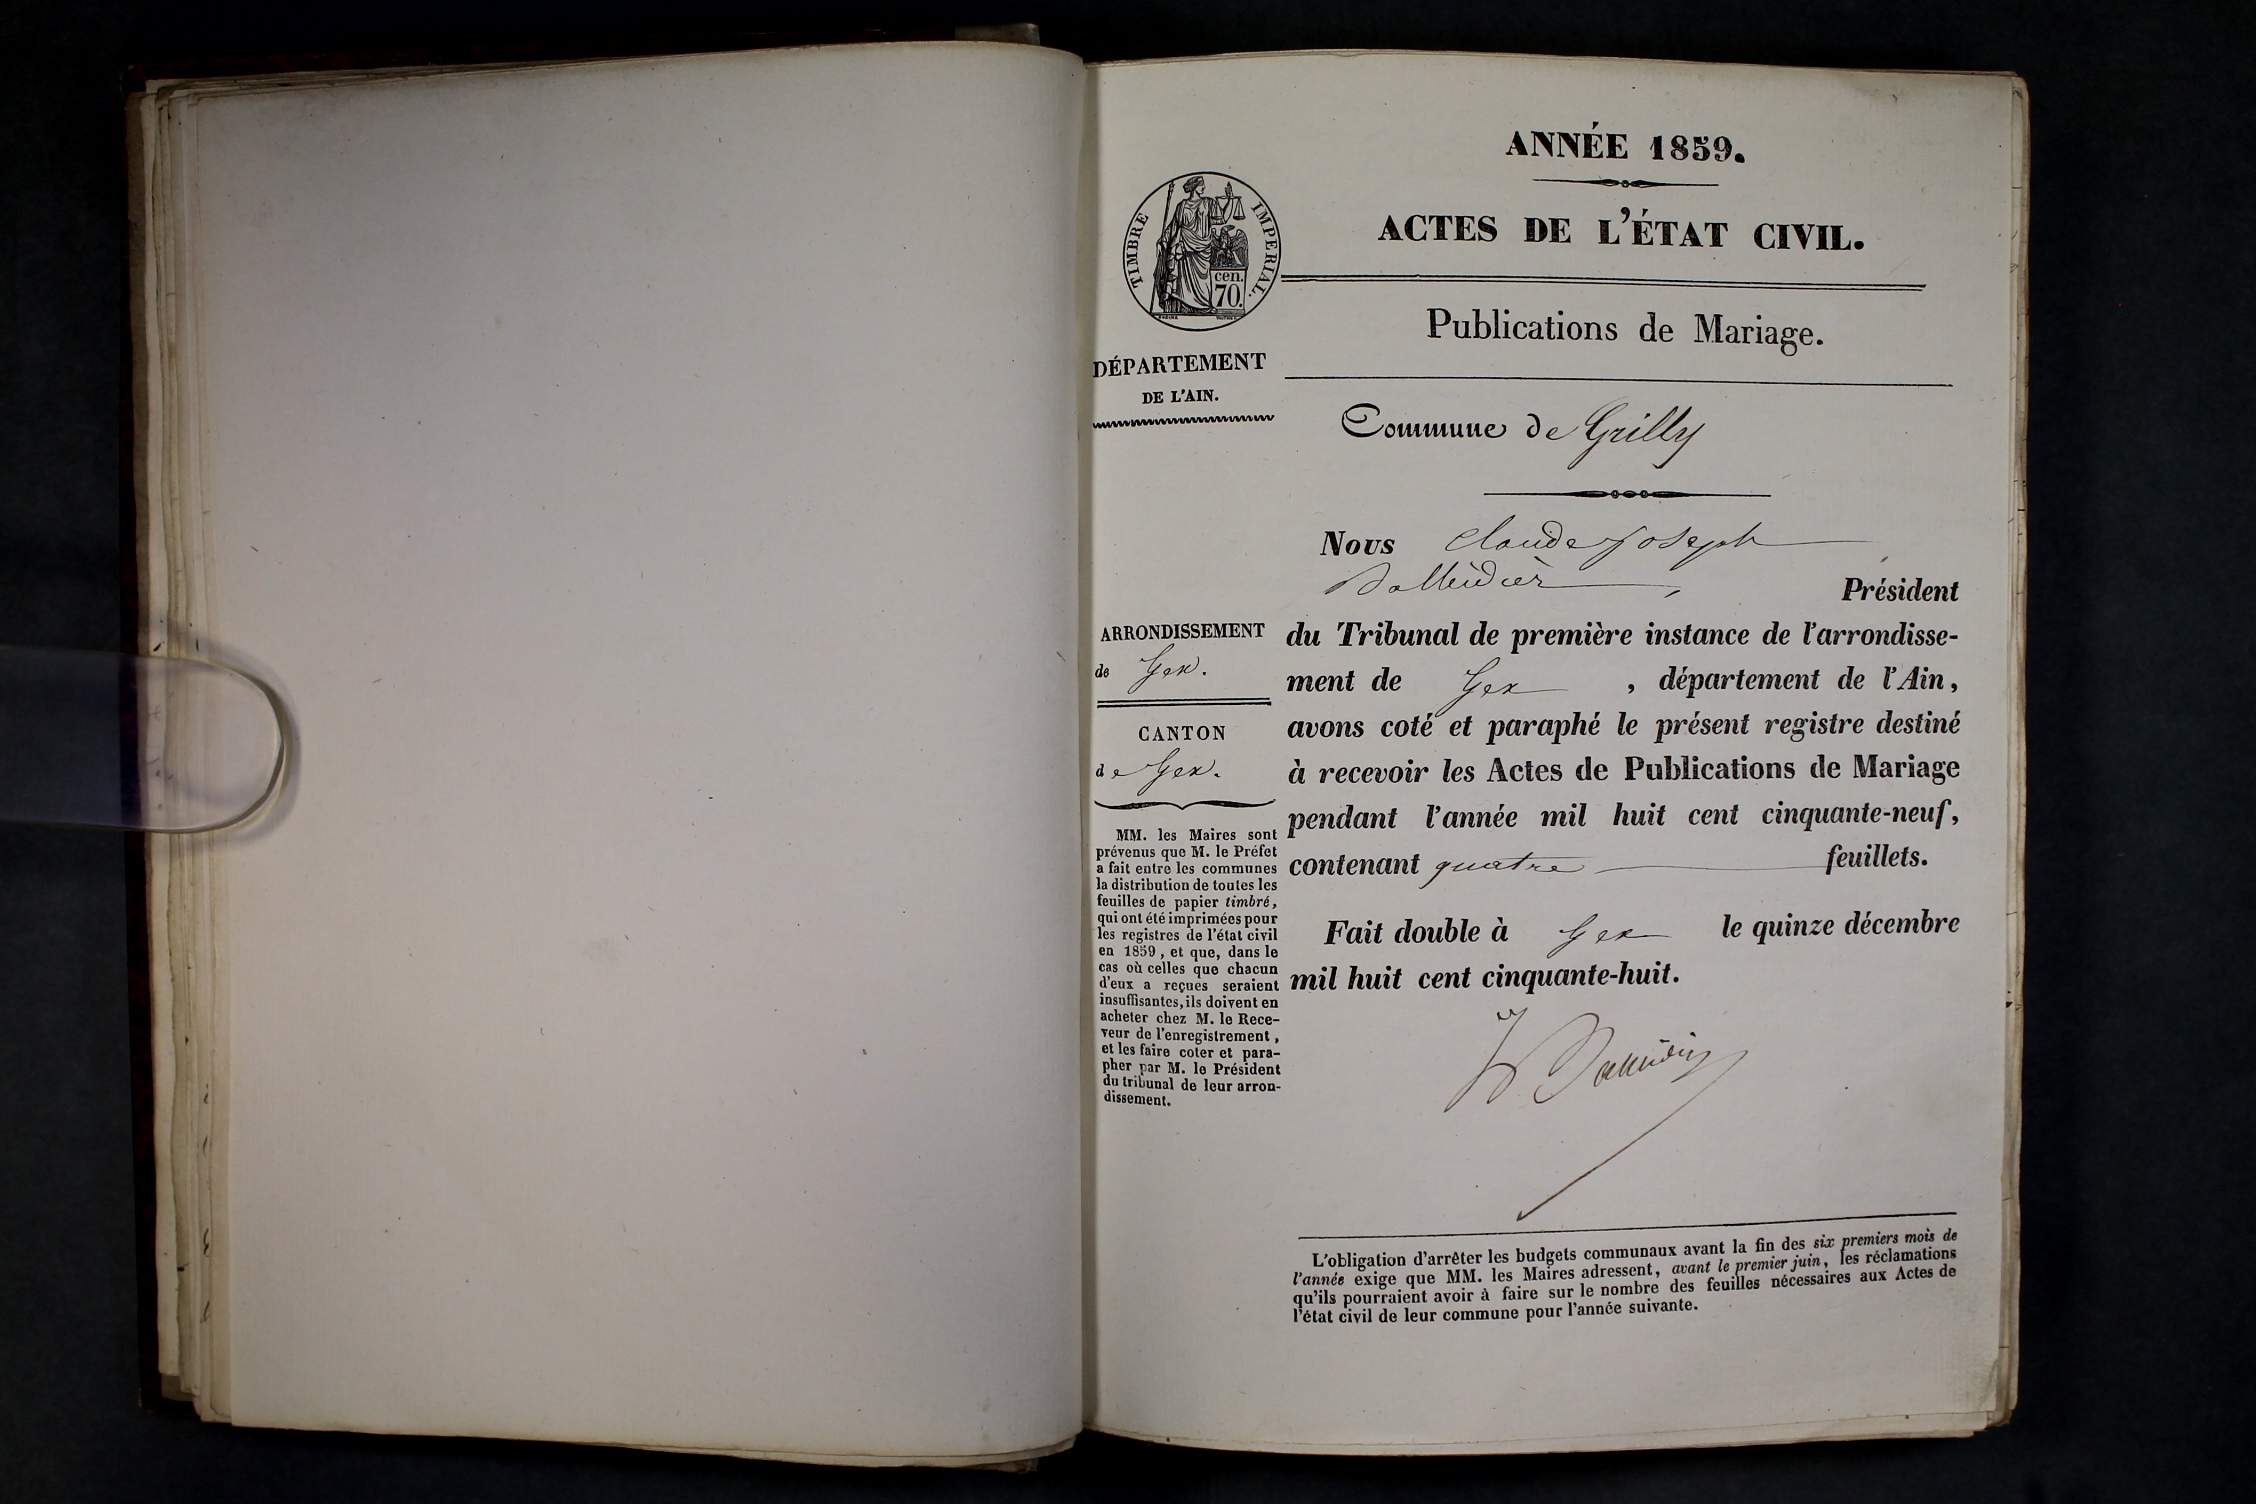 ANNÉE 1859.
ACTES DE L'ÉTAT CIVIL.
Publications de Mariage.
TIMBRE IMPERIAL.
cen.
70.
DÉPARTEMENT
DE L'AIN.
Commune de Grilly
Nous Claude Joseph
Président
du Tribunal de première instance de l'arrondisse-
ment de Gex , département de l'Ain,
avons coté et paraphé le présent registre destiné
à recevoir les Actes de Publications de Mariage
pendant l'année mil huit cent cinquante-neuf,
contenant quatre feuillets.
Fait double à Gex le quinze décembre
mil huit cent cinquante-huit.
ARRONDISSEMENT
de Gex.
CANTON
de Gex.
MM. les Maires sont
prévenus que M. le Préfet
a fait entre les communes
la distribution de toutes les
feuilles de papier timbré,
qui ont été imprimées pour
les registres de l'état civil
en 1859, et que, dans le
cas où celles que chacun
d'eux a reçues seraient
insuffisantes, ils doivent en
acheter chez M. le Rece-
veur de l'enregistrement,
et les faire coter et para-
pher par M. le Président
du tribunal de leur arron-
dissement.
L'obligation d'arrêter les budgets communaux avant la fin des six premiers mois de
l'année exige que MM. les Maires adressent, avant le premier juin, les réclamations
qu'ils pourraient avoir à faire sur le nombre des feuilles nécessaires aux Actes de
l'état civil de leur commune pour l'année suivante.